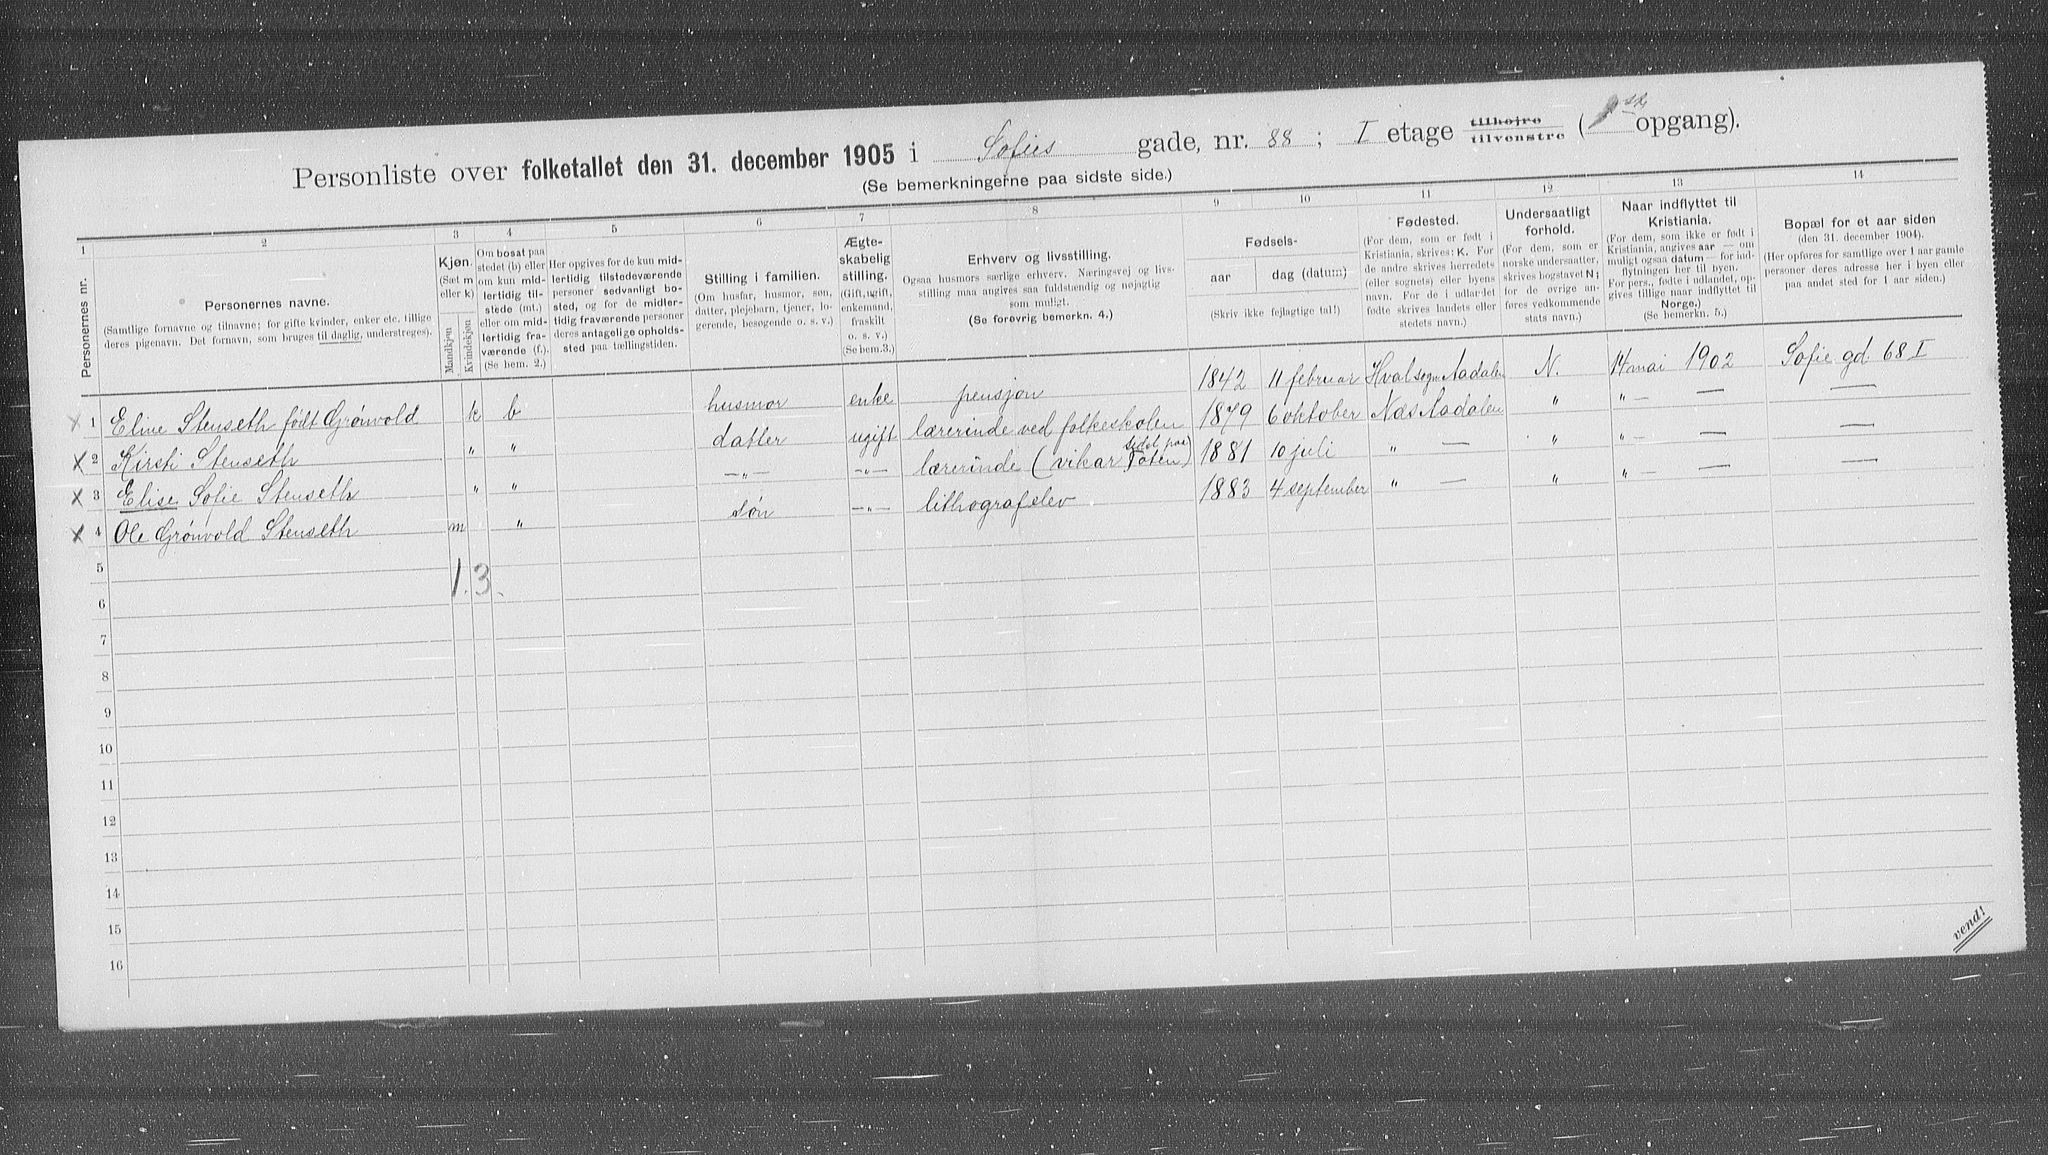 Personliste over folketallet den 31. december 1905 i Sofies gade, nr. 88 ; I etage tilhøjre tilvenstre ( opgang).
(Se bemerkningerne paa sidste side.)
1 2 3 4 5 6 7 8 9 10 11 12 13 14
Personernes nr.
Personernes navne.
(Samtlige fornavne og tilnavne; for gifte kvinder, enker etc. tillige
deres pigenavn. Det fornavn, som bruges til daglig, understreges).
Kjøn.
(Sæt m
eller k)
Mandkjøn
Kvindekjøn
Om bosat paa
stedet (b) eller
om kun mid-
lertidig til-
stede (mt.)
eller om mid-
lertidig fra-
værende (f.).
(Se bem. 2.)
Her opgives for de kun mid-
lertidig tilstedeværende
personer sedvanligt bo-
sted, og for de midler-
tidig fraværende personer
deres antagelige opholds-
sted paa tællingstiden.
Stilling i familien.
(Om husfar, husmor, søn,
datter, plejebarn, tjener, lo-
gerende, besøgende o. s. v.)
Ægte-
skabelig
stilling.
(Gift, ugift,
enkemand,
fraskilt
o. s. v.)
(Se bem.3.)
Erhverv og livsstilling.
Ogsaa husmors særlige erhverv. Næringsvej og livs-
stilling maa angives saa fuldstændig og nøjagtig
som muligt.
(Se forøvrig bemerkn. 4.)
Fødsels-
aar dag (datum)
(Skriv ikke fejlagtige tal!)
Fødested.
(For dem, som er født i
Kristiania, skrives: K. For
de andre skrives herredets
(eller sognets) eller byens
navn. For de i udlandet
fødte skrives landets eller
stedets navn.)
Undersaatligt
forhold.
(For dem, som er
norske undersaatter,
skrives bogstavet N;
for de øvrige an-
føres vedkommende
stats navn.)
Naar indflyttet til
Kristiania.
(For dem, som ikke er født i
Kristiania, angives aar — om
muligt ogsaa datum — for ind-
flytningen her til byen.
For pers., fødte i udlandet, op-
gives tillige naar indflyttet til
Norge.)
(Se bemerkn. 5.)
Bopæl for et aar siden
(den 31. december 1904).
(Her opføres for samtlige over 1 aar gamle
personer deres adresse her i byen eller
paa andet sted for 1 aar siden.)
x 1 Eline Stenseth født Grønvold k b husmor enke pensjon 1842 11 februar Hval sogn Aadalen N. 14 mai 1902 Sofie gd 68 I
x 2 Kirsti Stenseth " " datter ugift lærerinde ved folkeskolen 1879 6 oktober Næs Aadalen " " — — —
x 3 Elise Sofie Stenseth " " —"— —"— lærerinde (vikar Toten) 1881 10 juli " — " " — — —
x 4 Ole Grønvold Stenseth m " søn —"— lithografelev 1883 4 september " — " " — — —
5
1. 3.
6
7
8
9
10
11
12
13
14
15
16
vend!